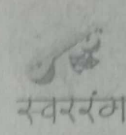 स्वररंग